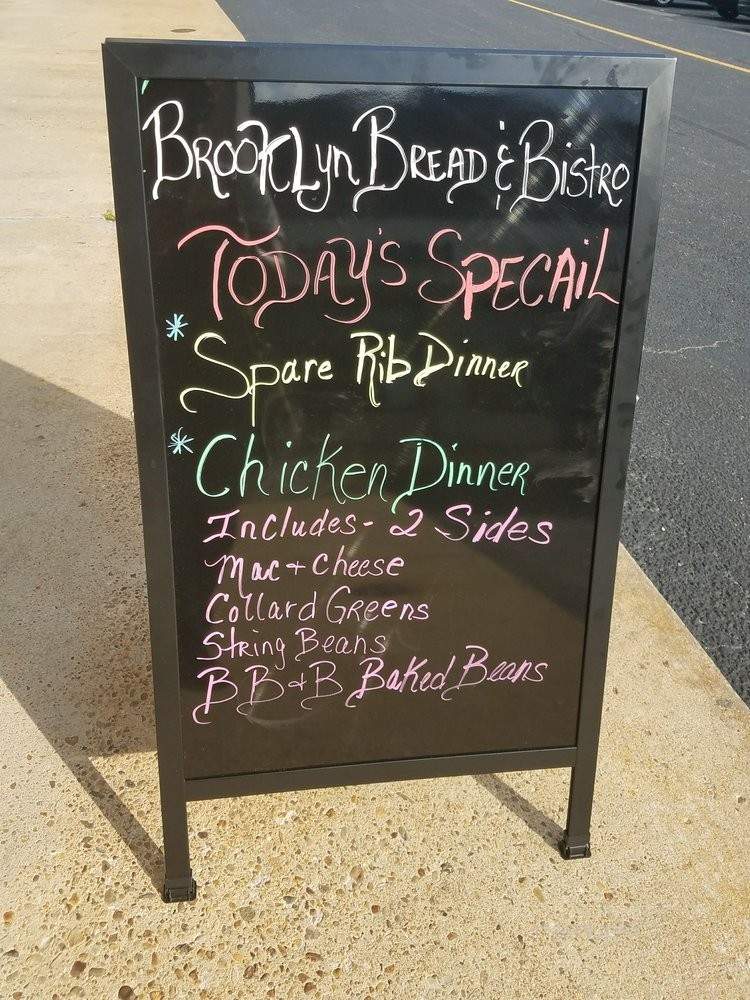 Brooklyn Bread & Bistro
Today's Specail
* Spare Rib Dinner
* Chicken Dinner
Includes - 2 Sides
Mac + Cheese
Collard Greens
String Beans
BB+B Baked Beans